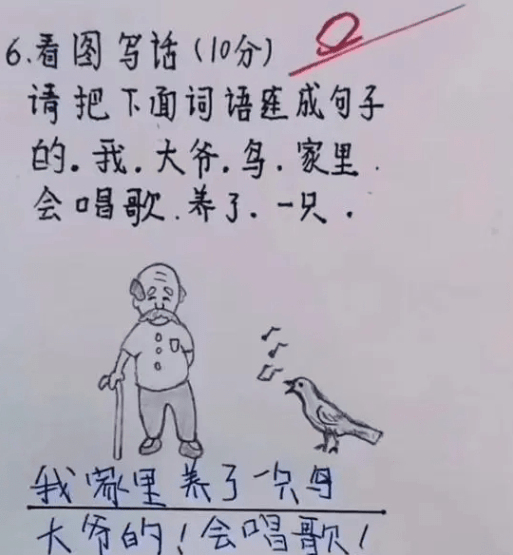 6.看图写话(10分)
请把下面词语连成句子
的.我.大爷.鸟.家里.
会唱歌.养了.一只.
我家里养了一只鸟
大爷的!会唱歌!